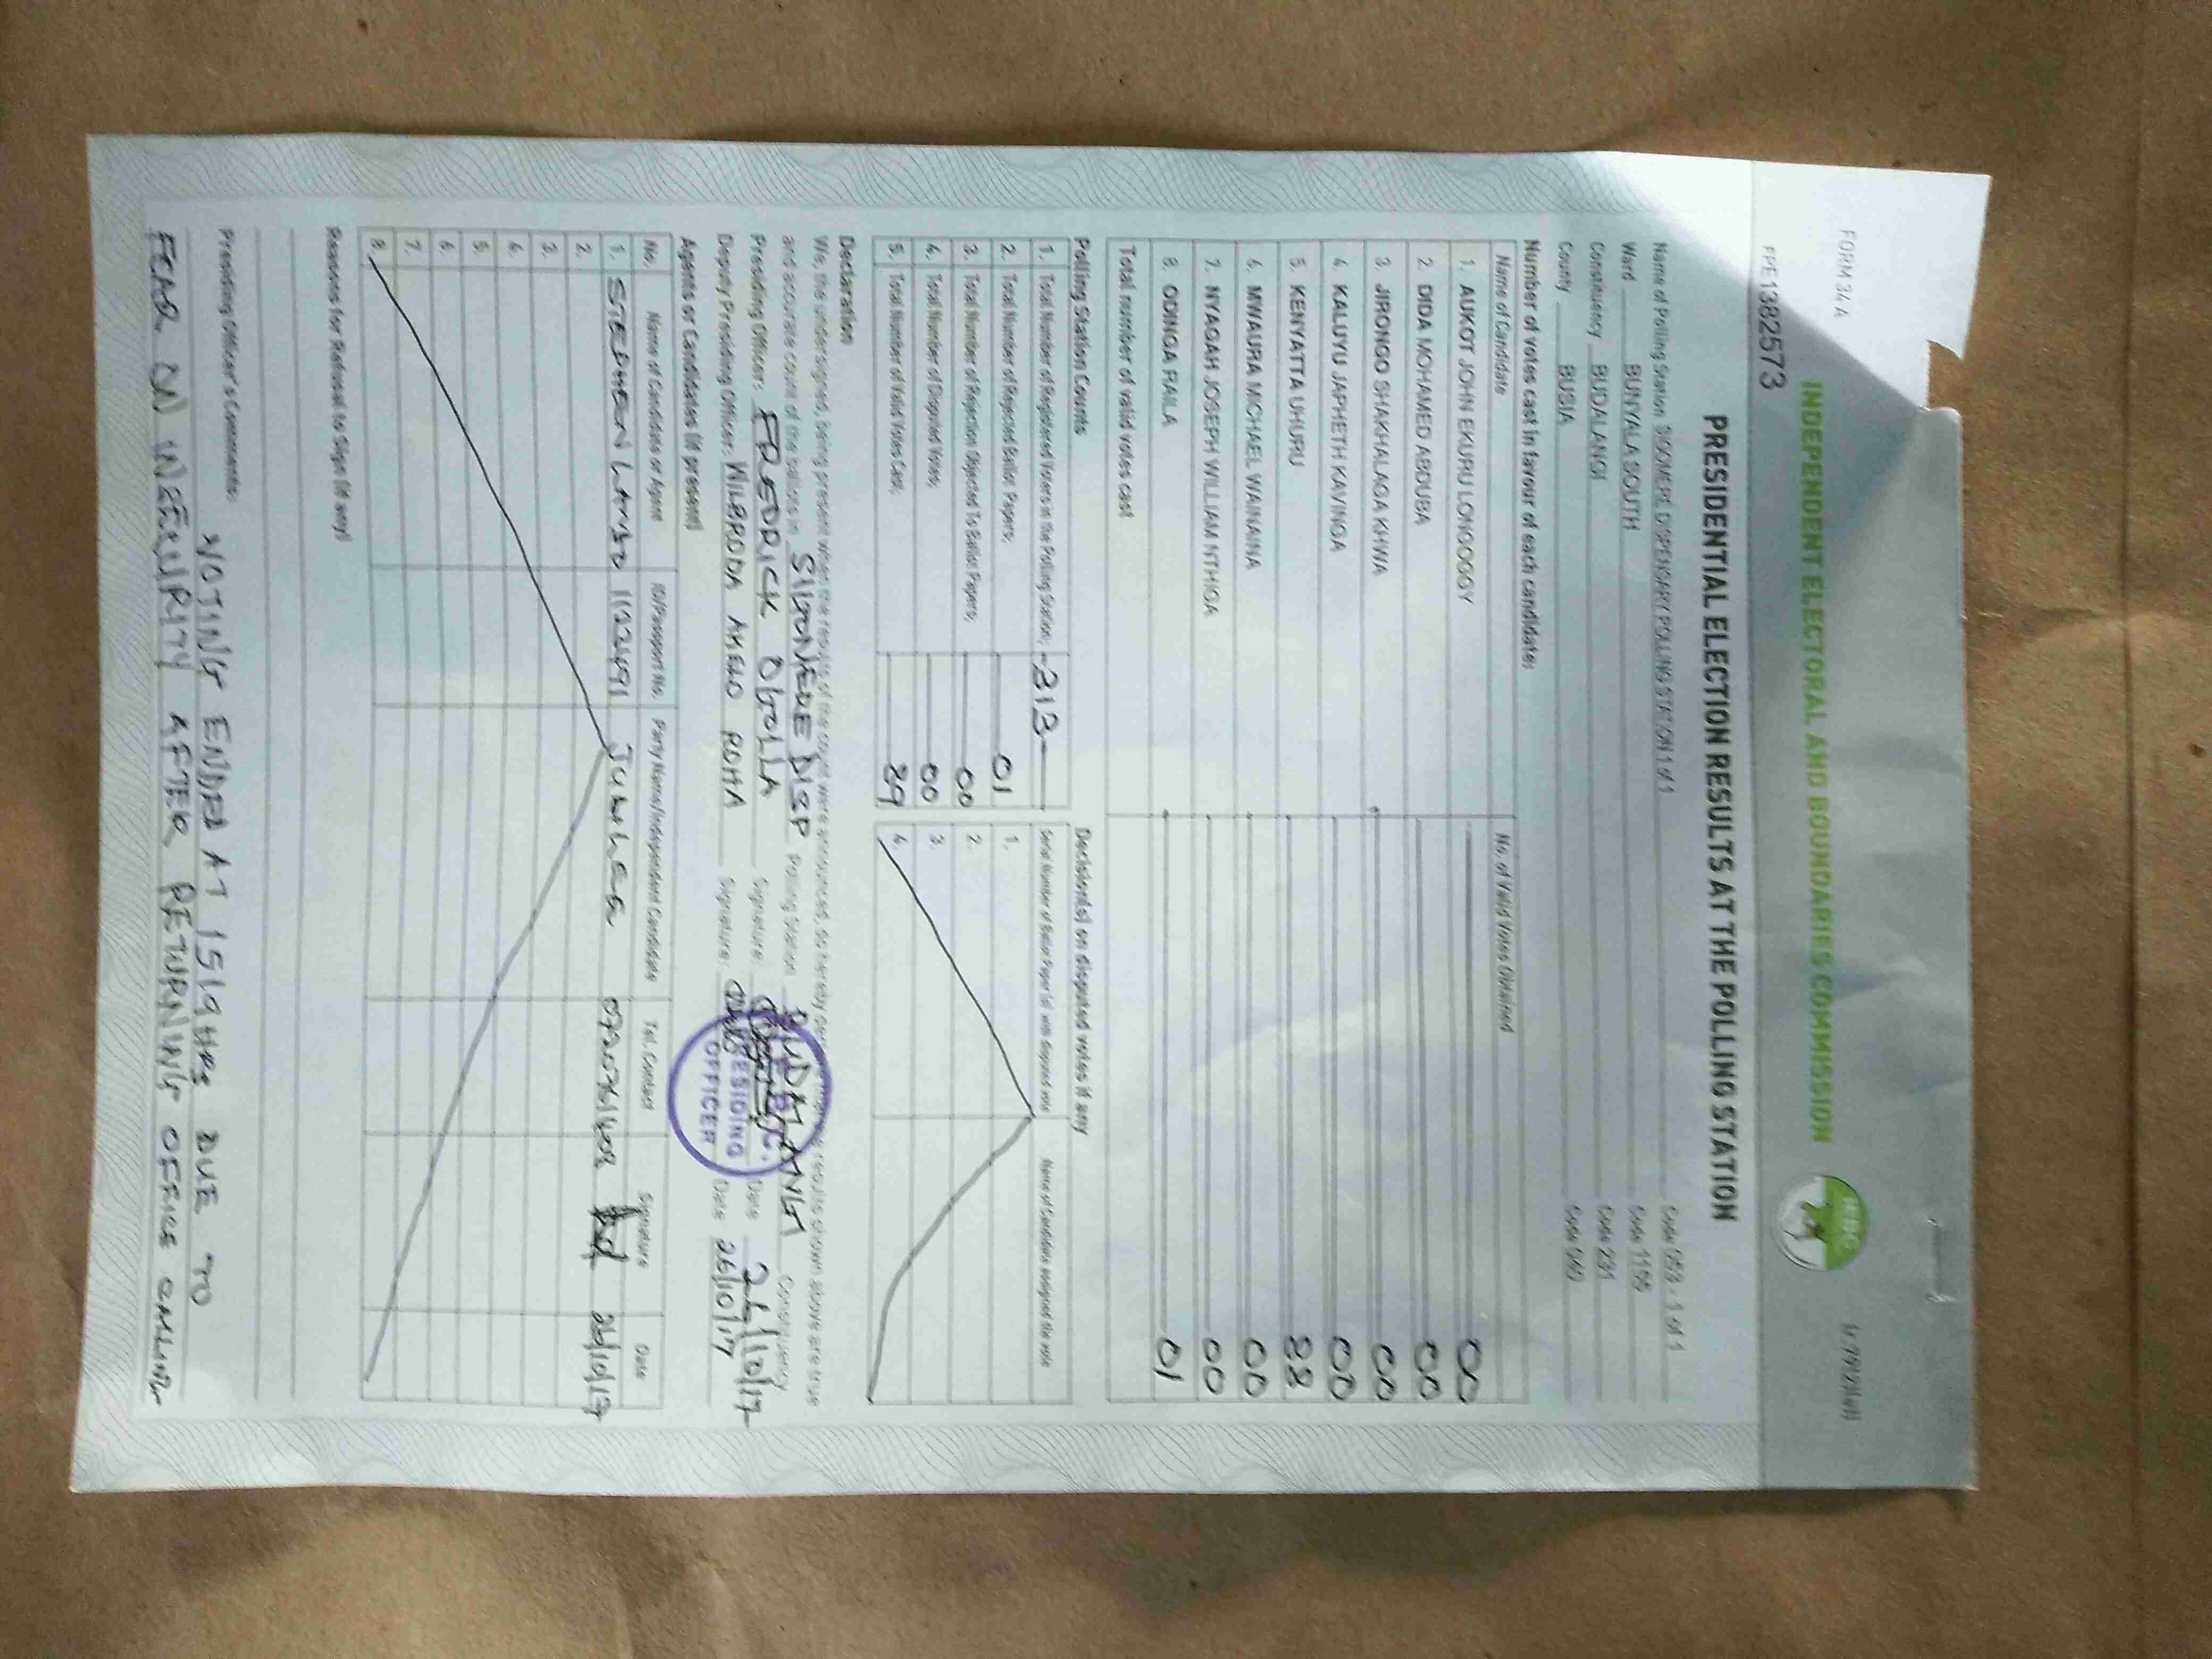 FORM 34A
INDEPENDENT ELECTORAL AND BOUNDARIES COMMISSION
FPE1382573
PRESIDENTIAL ELECTION RESULTS AT THE POLLING STATION
Name of Polling Station SIGOMERE DISPENSARY POLLING STATION 1 of 1 Code 053 - 1 of 1
Ward BUNYALA SOUTH Code 1155
Constituency BUDALANGI Code 231
County BUSIA Code 040
Number of votes cast in favour of each candidate:
Name of Candidate No. of Valid Votes Obtained
1. AUKOT JOHN EKURU LONGOGGY 00
2. DIDA MOHAMED ABDUBA 00
3. JIRONGO SHAKHALAGA KHWA 00
4. KALUYU JAPHETH KAVINGA 00
5. KENYATTA UHURU 38
6. MWAURA MICHAEL WAINAINA 00
7. NYAGAH JOSEPH WILLIAM NTHIGA 00
8. ODINGA RAILA 01
Total number of valid votes cast
Polling Station Counts
1. Total Number of Registered Voters in the Polling Station; -313-
2. Total Number of Rejected Ballot Papers; 01
3. Total Number of Rejection Objected To Ballot Papers; 00
4. Total Number of Disputed Votes; 00
5. Total Number of Valid Votes Cast; 39
Decision(s) on disputed votes if any
Serial Number of Ballot Paper(s) with disputed vote Name of Candidate assigned the vote
1.
2.
3.
4.
Declaration
We, the undersigned, being present when the results of the count were announced, do hereby results shown above are true
and accurate count of the ballots in DISP Polling Station BUDALANGI Constituency
Presiding Officer: FREDRICK OGOLLA Signature: Date 26/10/17
Deputy Presiding Officer: WILBRODA AKELO ROHA Signature: Date 26/10/17
PRESIDING OFFICER
Agents or Candidates (if present)
No. Name of Candidate or Agent ID/Passport No. Party Name/Independent Candidate Tel. Contact Signature Date
1. STEPHEN 11224191 JUBILEE 26/10/17
2.
3.
4.
5.
6.
7.
8.
Reasons for Refusal to Sign (if any)
Presiding Officer's Comments: VOTING ENDED AT 1519HRS DUE TO
FEAR ON INSECURITY AFTER RETURNING OFFICE CALLING